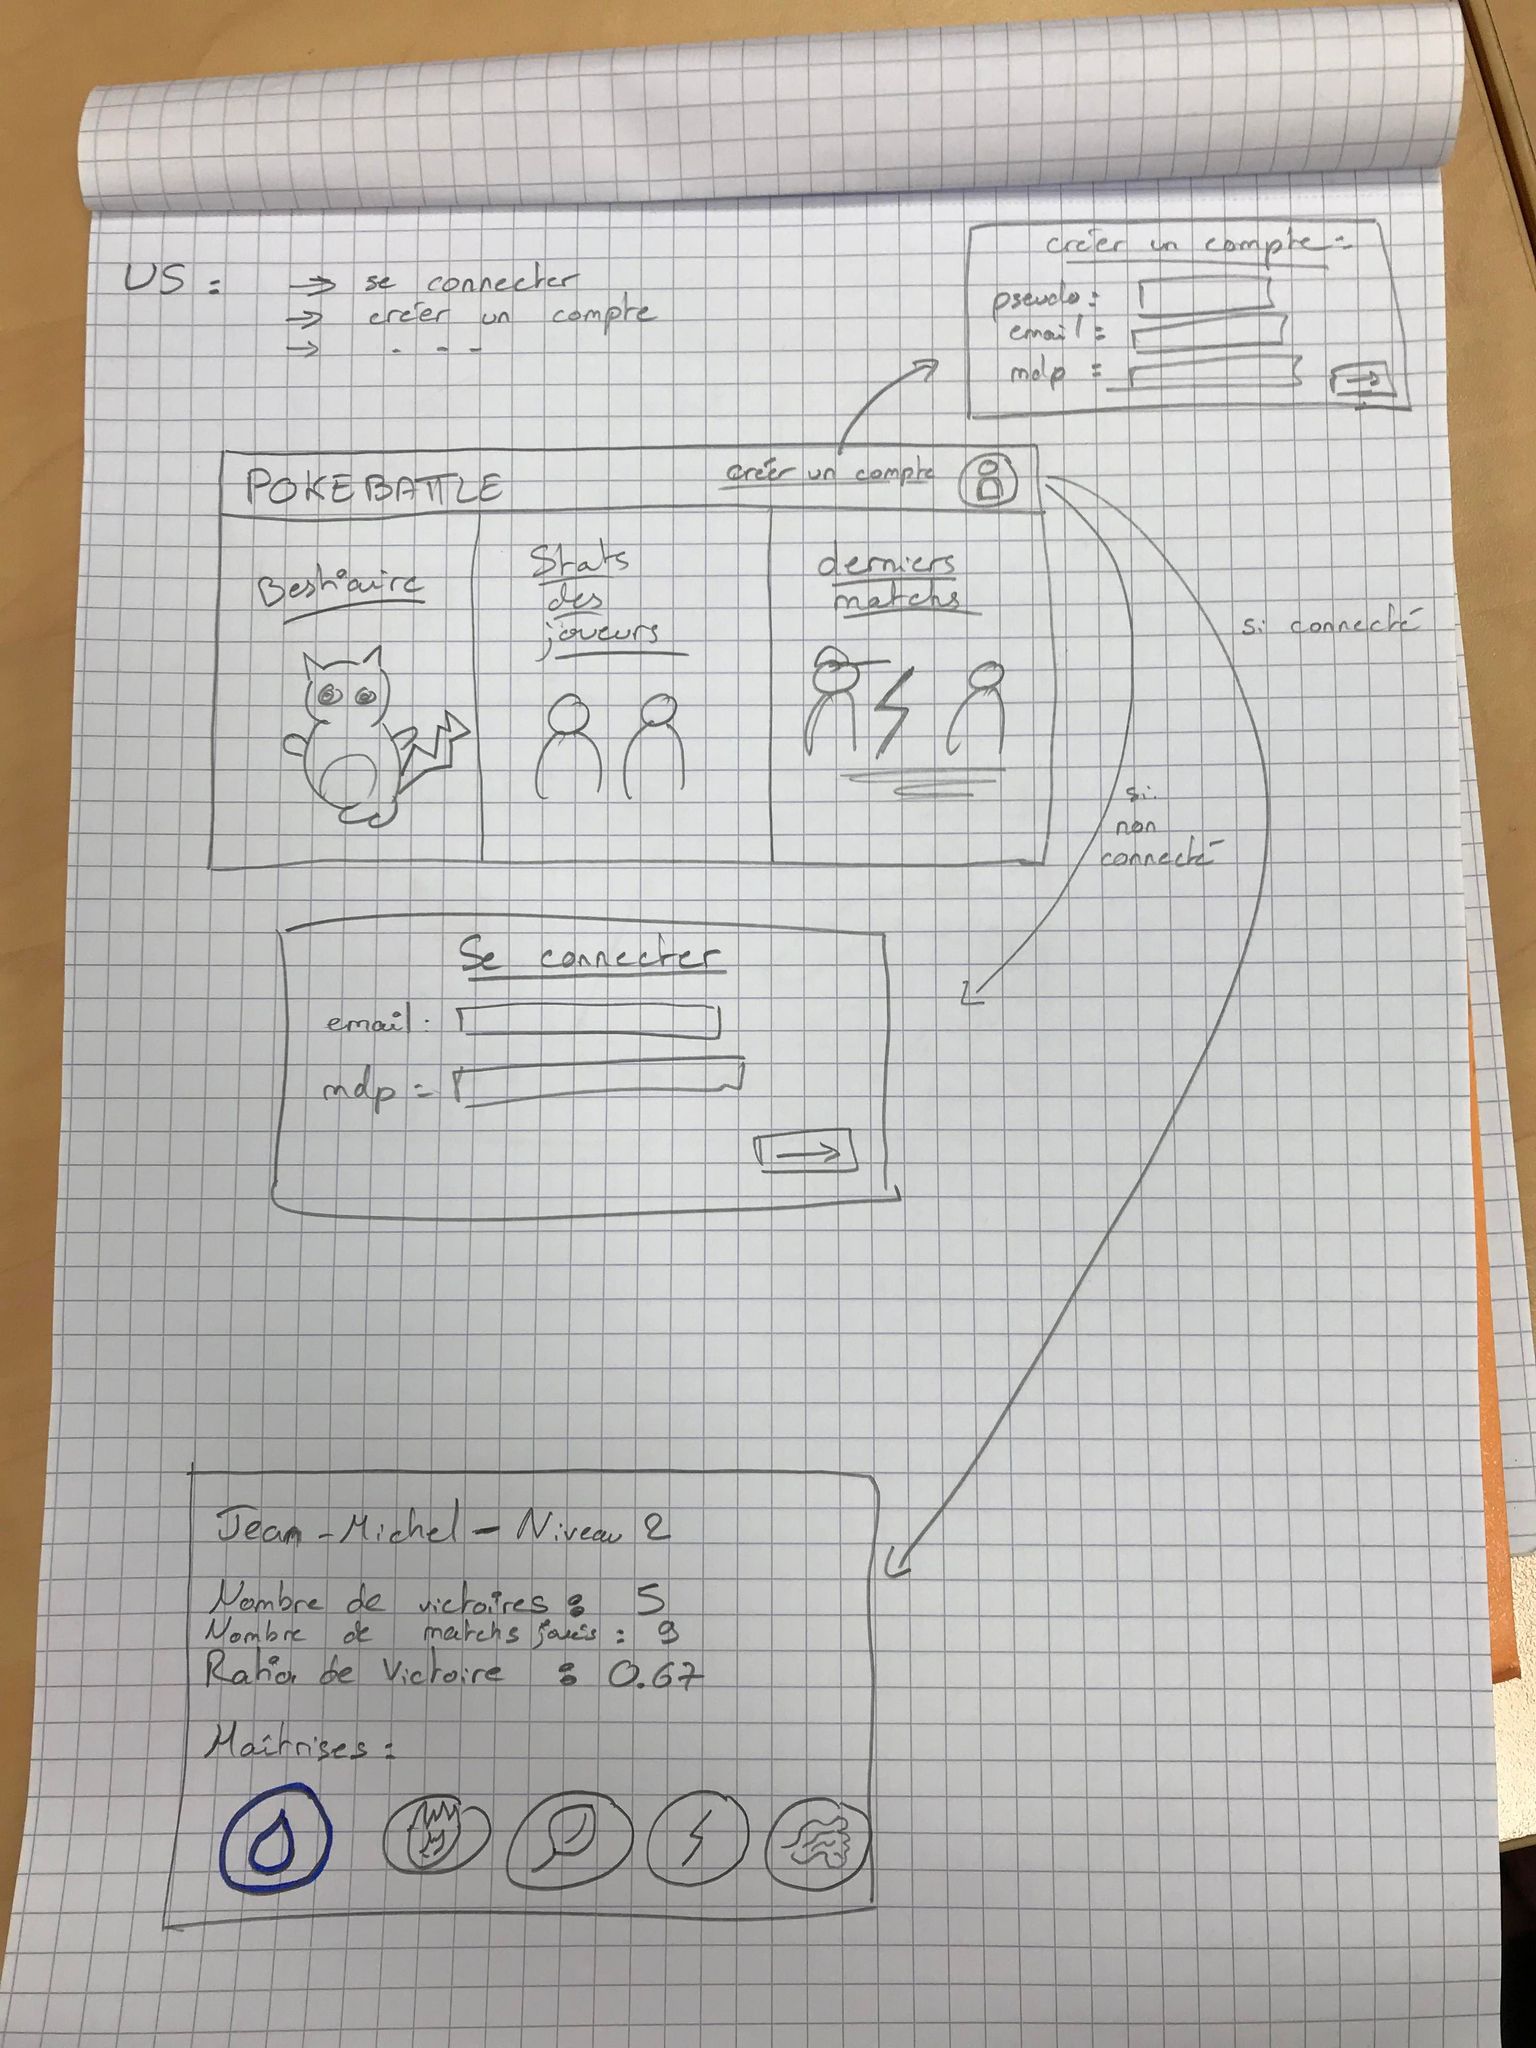 US : → se connecter
→ créer un compte
→ . - - -
créer un compte :
pseudo :
email :
mdp :
→
POKEBATTLE
créer un compte
Bestiaire
Stats
des
joueurs
derniers
matchs
si connecté
si
non
connecté
Se connecter
email :
mdp :
→
Jean-Michel - Niveau 2
Nombre de victoires : 5
Nombre de matchs joués : 9
Ratio de Victoire : 0.67
Maîtrises :